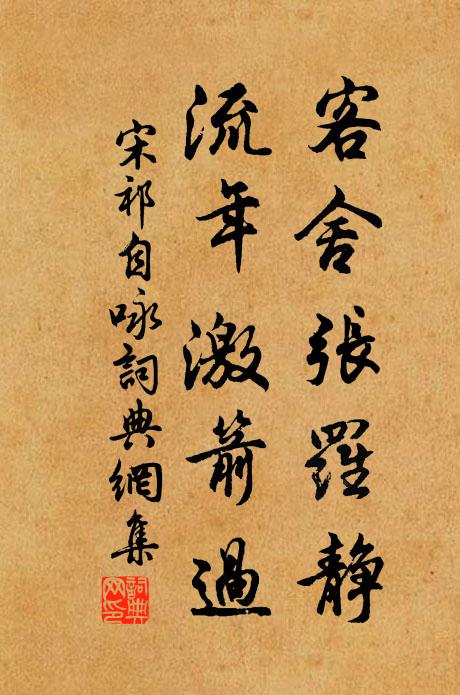 客舍張羅静
流年激箭過
宋祁自咏詞典網集
詞典網印